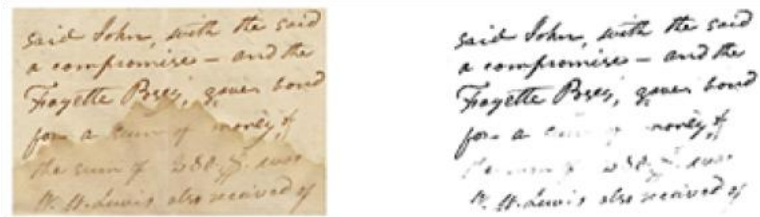 said John, with the said
a compromise — and the
Fayette Posey, gaven bond
for a sum of money, of
the sum of 280. was
W. H. Lewis also received of
said John, with the said
a compromise — and the
Fayette Posey, gaven bond
for a of money, of
the sum of 280. was
W. H. Lewis also received of